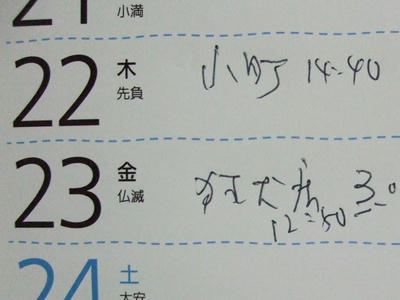 21
小満
22 木 小町 14:40
先負
23 金 狂犬房 3.0
仏滅 12:50
24 土
大安